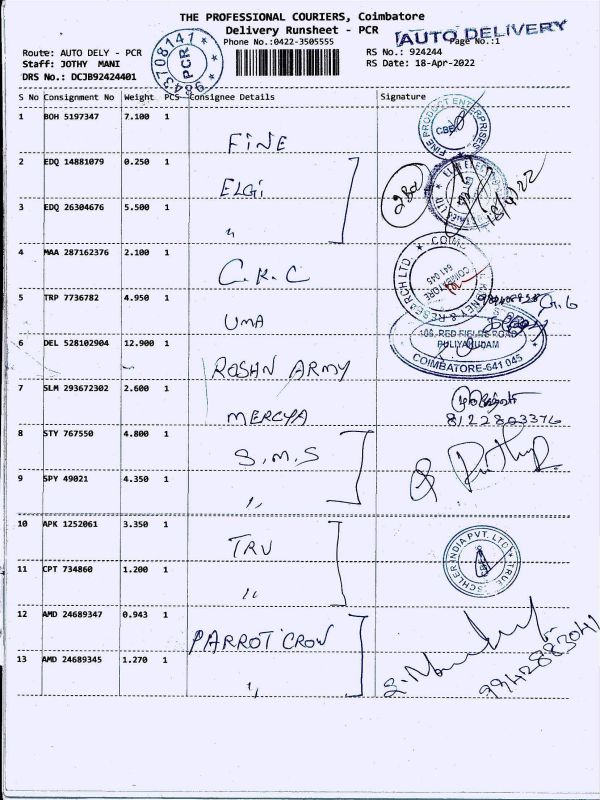 THE PROFESSIONAL COURIERS, Coimbatore
Delivery Runsheet - PCR
Phone No.:0422-3505555
AUTO DELIVERY
Page No.:1
Route: AUTO DELY - PCR
Staff: JOTHY MANI
DRS No.: DCJB92424401
9843708141
PCR
RS No.: 924244
RS Date: 18-Apr-2022
S No Consignment No Weight PCS Consignee Details Signature
1 BOH 5197347 7.100 1 FINE
CBE
2 EDQ 14881079 0.250 1 ELGi
18/4/22
3 EDQ 26304676 5.500 1 "
4 MAA 287162376 2.100 1 C.K.C
COIMBATORE
641 045
5 TRP 7736782 4.950 1 UMA
6 DEL 528102904 12.900 1 ROSHN ARMY
106, RED FIELDS ROAD
PULIYAKULAM
COIMBATORE-641 045
7 SLM 293672302 2.600 1 MERCYA
8122803376
8 STY 767550 4.800 1 S.M.S
9 SPY 49021 4.350 1 "
10 APK 1252061 3.350 1 TRU
11 CPT 734860 1.200 1 "
12 AMD 24689347 0.943 1 PARROT CROW
13 AMD 24689345 1.270 1 "
9942883041